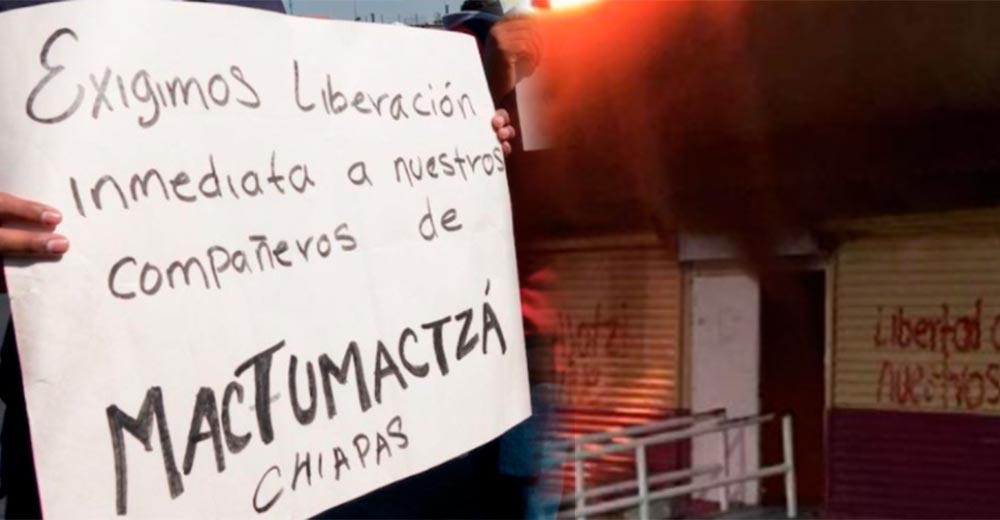 Exigimos liberación
inmediata a nuestros
compañeros de
MACTUMACTZÁ
CHIAPAS
Libertad
nuestros